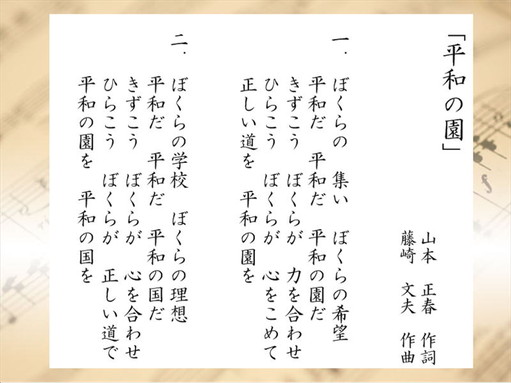 「平和の園」
山本　正春　作詞
藤崎　文夫　作曲
一．ぼくらの　集い　ぼくらの希望
平和だ　平和だ　平和の園だ
きずこう　ぼくらが　力を合わせ
ひらこう　ぼくらが　心をこめて
正しい道を　平和の園を
二．ぼくらの学校　ぼくらの理想
平和だ　平和だ　平和の国だ
きずこう　ぼくらが　心を合わせ
ひらこう　ぼくらが　正しい道で
平和の園を　平和の国を